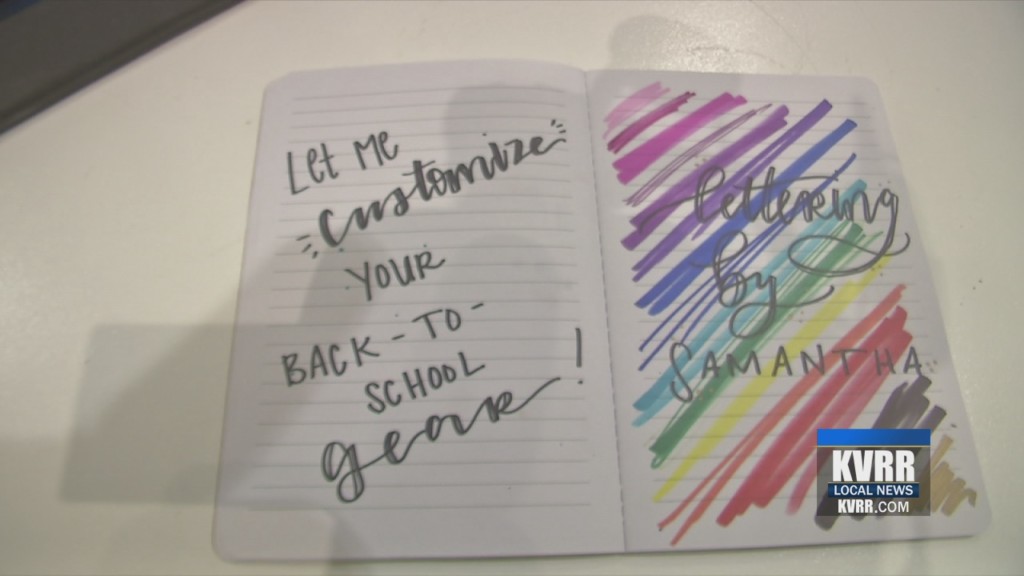 Let Me
customize
YOUR
BACK-TO-
SCHOOL
gear!
lettering
by
SAMANTHA
KVRR
LOCAL NEWS
KVRR.COM